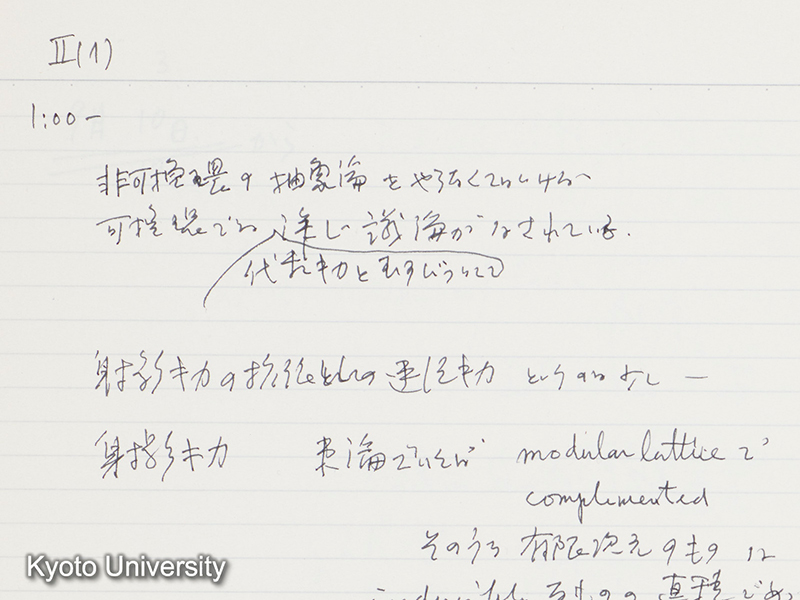 II(1)
1:00 –
非可換環の抽象論を
可換環での 詳しい議論がなされている.
代数キカとむすびついて
射影キカの拡張としての連続キカ というのは少し —
射影キカ 束論でいえば modular lattice で
complemented
そのうち 有限次元のものは
直積で
Kyoto University